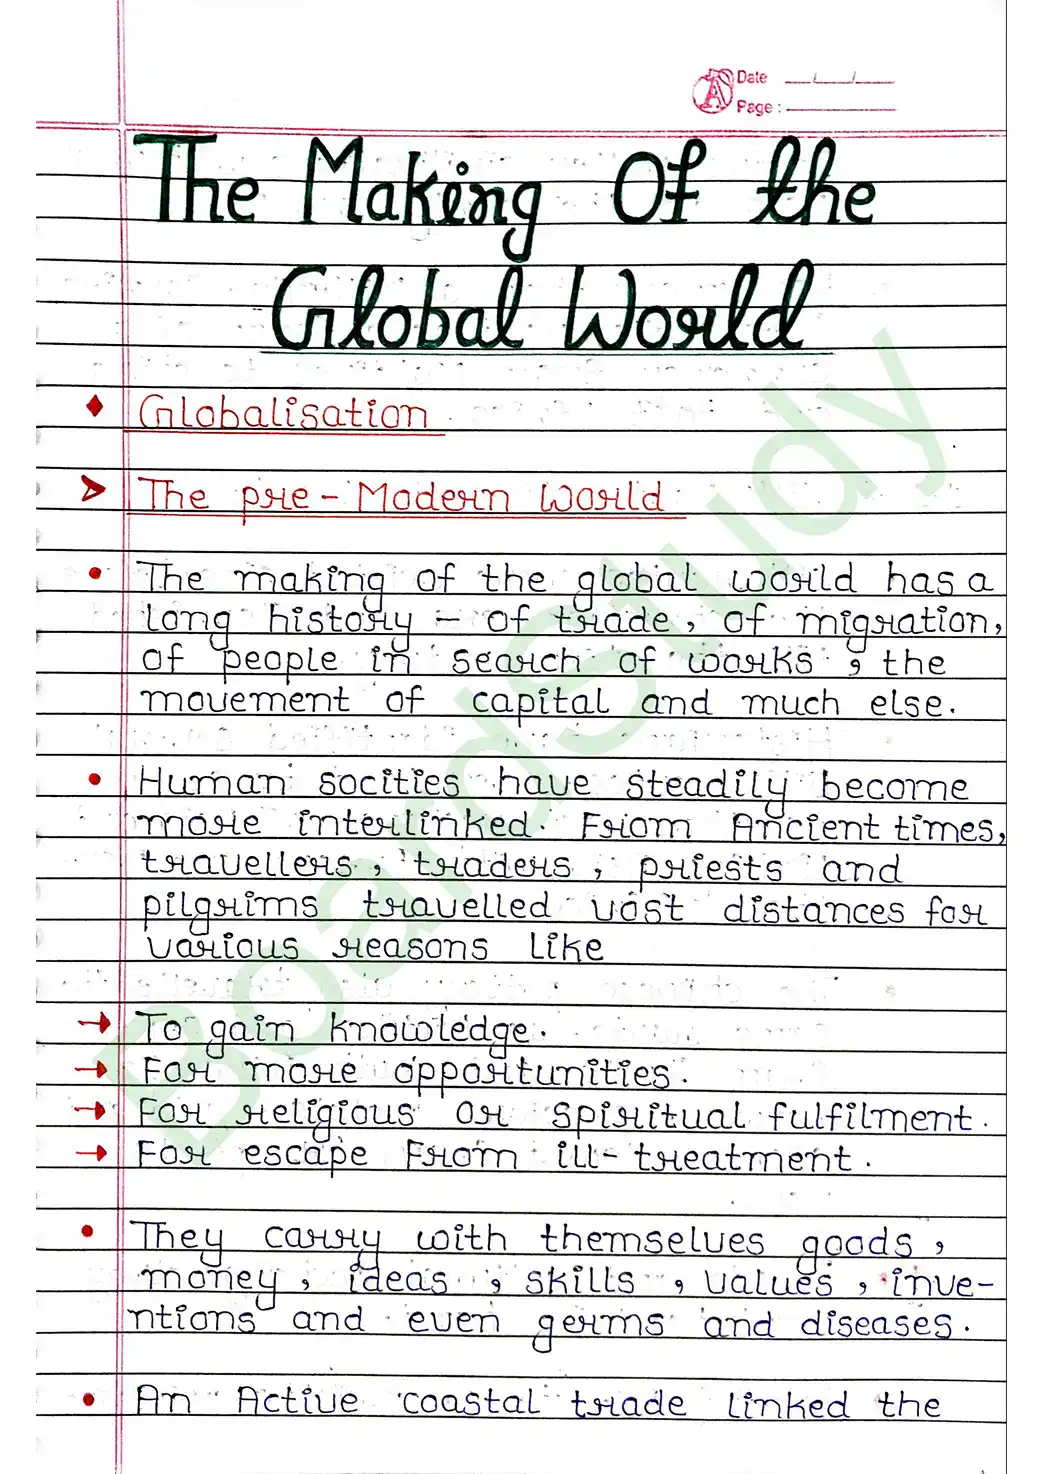 Date __/__/__
Page : ______
The Making Of the
Global World
Globalisation
The pre - Modern World
The making of the global world has a
long history - of trade, of migration,
of people in search of works, the
movement of capital and much else.
Human socities have steadily become
more interlinked. From Ancient times,
travellers, traders, priests and
pilgrims travelled vast distances for
various reasons like
→ To gain knowledge.
→ For more opportunities.
→ For religious or spiritual fulfilment.
→ For escape From ill-treatment.
They carry with themselves goods,
money, ideas, skills, values, inve-
ntions and even germs and diseases.
An Active coastal trade linked the
BoardStudy